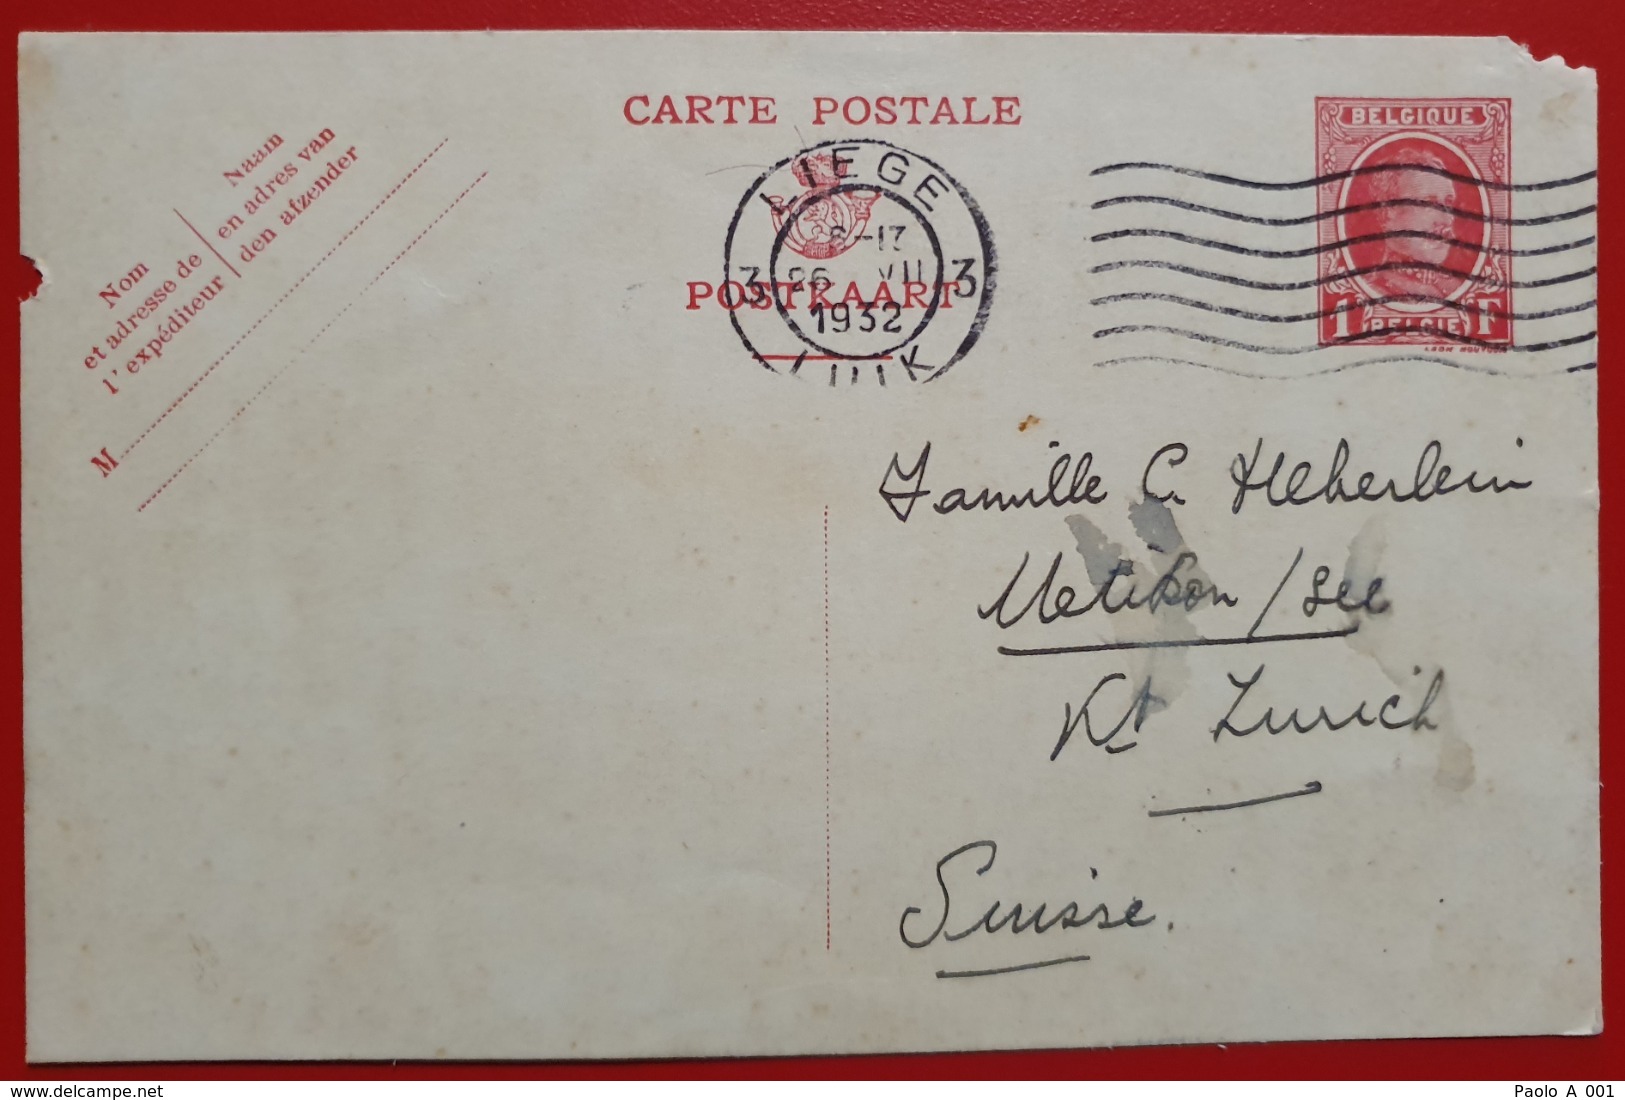 CARTE POSTALE
POSTKAART
Nom
et adresse de
l'expéditeur
Naam
en adres van
den afzender
M
LIEGE
8-17
3 26 VII 3
1932
LUIK
BELGIQUE
1 BELGIE F
Famille C. Heberlein
Uetikon / See
Kt Zurich
Suisse.
delcampe.net
Paolo A 001